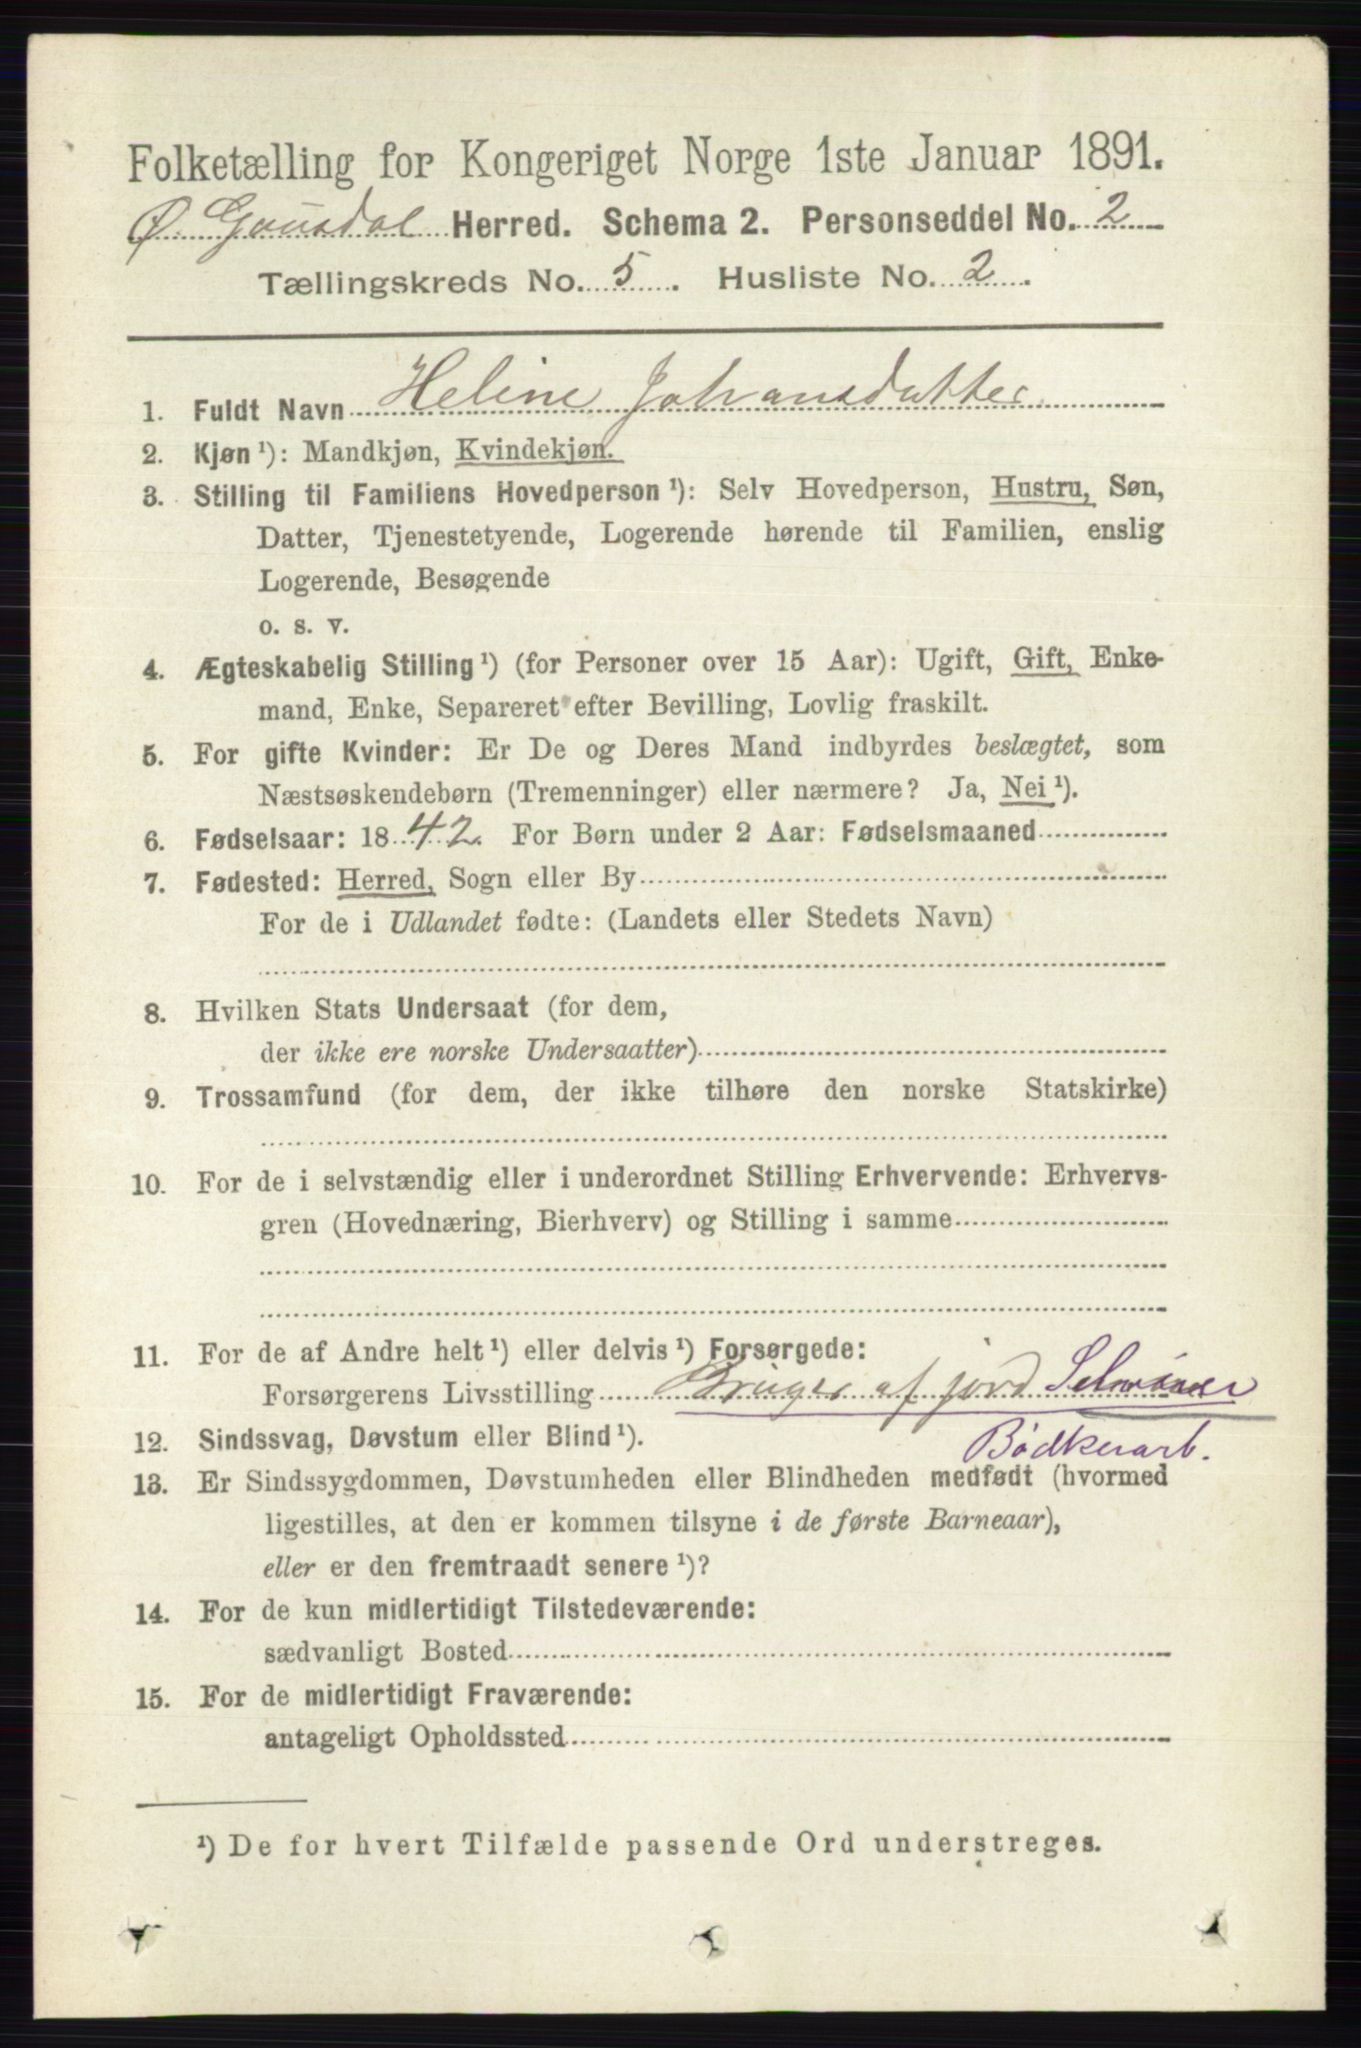 Folketælling for Kongeriget Norge 1ste Januar 1891.
Ø. Gausdal Herred. Schema 2. Personseddel No. 2
Tællingskreds No. 5. Husliste No. 2.
1. Fuldt Navn Heline Johansdatter
2. Kjøn ¹): Mandkjøn, Kvindekjøn.
3. Stilling til Familiens Hovedperson ¹): Selv Hovedperson, Hustru, Søn,
Datter, Tjenestetyende, Logerende hørende til Familien, enslig
Logerende, Besøgende
o. s. v.
4. Ægteskabelig Stilling ¹) (for Personer over 15 Aar): Ugift, Gift, Enke-
mand, Enke, Separeret efter Bevilling, Lovlig fraskilt.
5. For gifte Kvinder: Er De og Deres Mand indbyrdes beslægtet, som
Næstsøskendebørn (Tremenninger) eller nærmere? Ja, Nei ¹).
6. Fødselsaar: 1842. For Børn under 2 Aar: Fødselsmaaned
7. Fødested: Herred, Sogn eller By
For de i Udlandet fødte: (Landets eller Stedets Navn)
8. Hvilken Stats Undersaat (for dem,
der ikke ere norske Undersaatter)
9. Trossamfund (for dem, der ikke tilhøre den norske Statskirke)
10. For de i selvstændig eller i underordnet Stilling Erhvervende: Erhvervs-
gren (Hovednæring, Bierhverv) og Stilling i samme
11. For de af Andre helt ¹) eller delvis ¹) Forsørgede:
Forsørgerens Livsstilling Bruger af jord Selveier
Bødkerarb.
12. Sindssvag, Døvstum eller Blind ¹).
13. Er Sindssygdommen, Døvstumheden eller Blindheden medfødt (hvormed
ligestilles, at den er kommen tilsyne i de første Barneaar),
eller er den fremtraadt senere ¹)?
14. For de kun midlertidigt Tilstedeværende:
sædvanligt Bosted
15. For de midlertidigt Fraværende:
antageligt Opholdssted
¹) De for hvert Tilfælde passende Ord understreges.